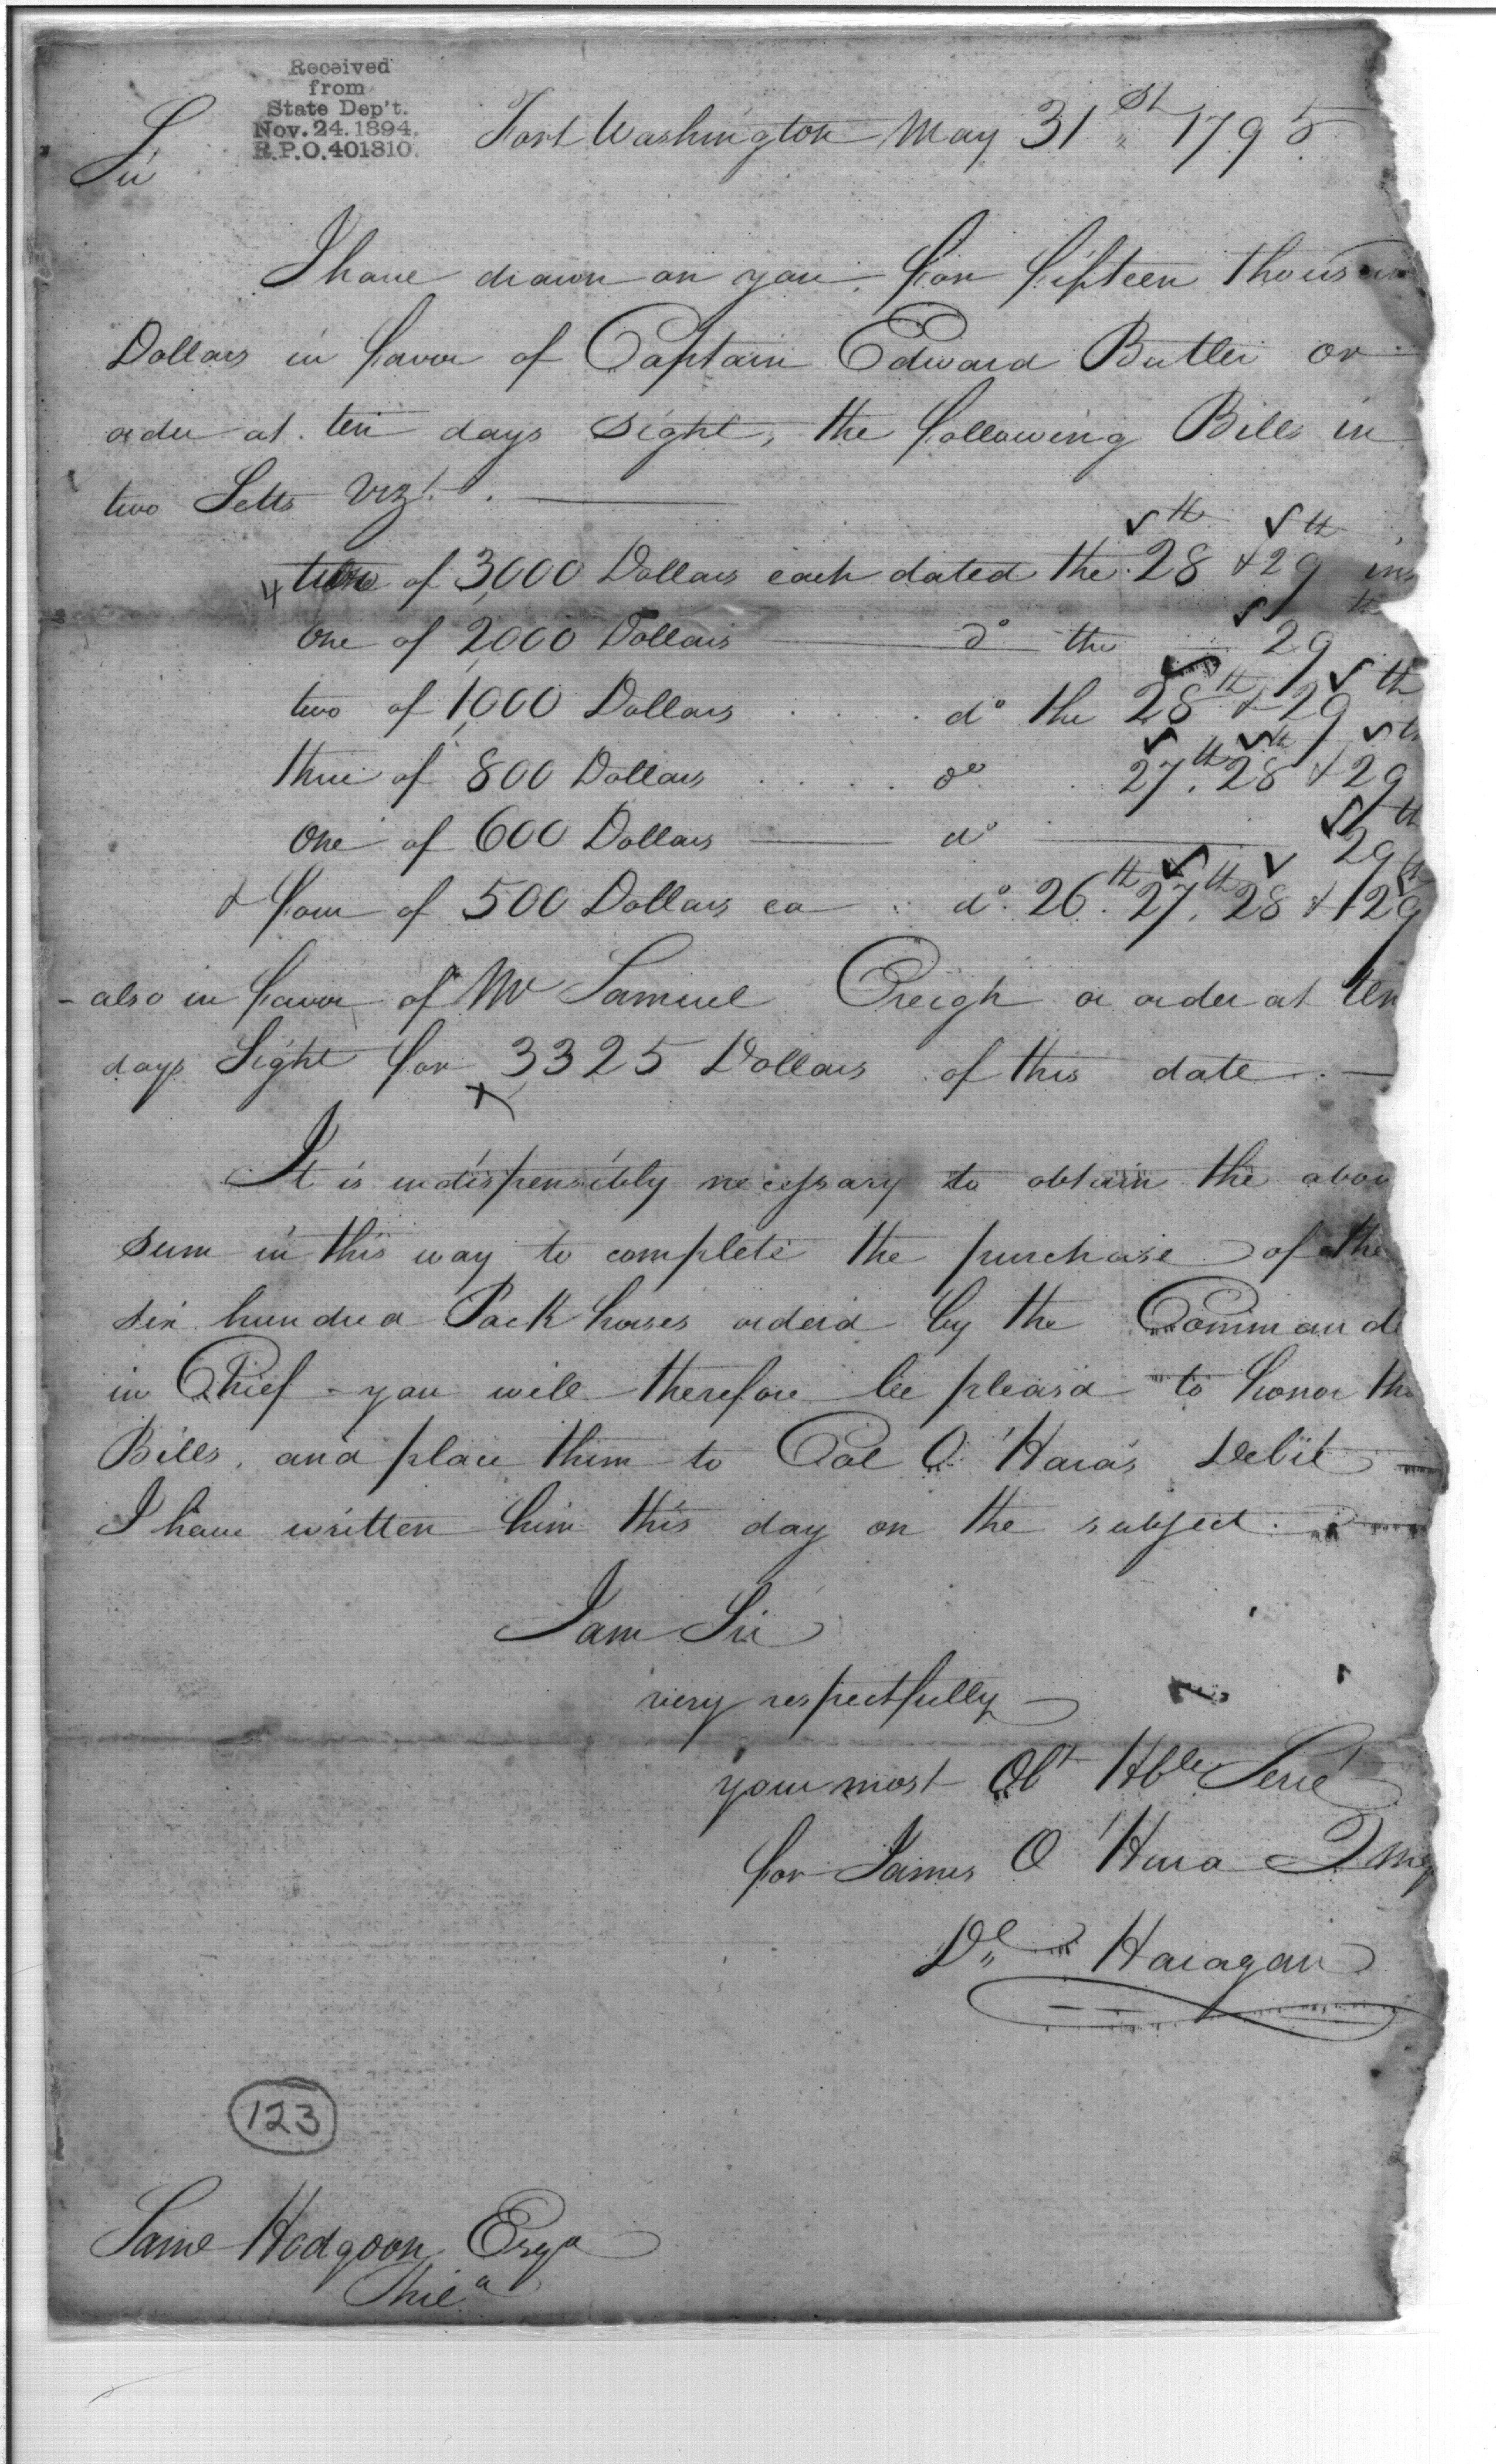 Received
from
State Dep't.
Nov. 24. 1894.
R.P.O. 401810.
Fort Washington May 31st 1795
Sir
I have drawn on you for fifteen thousan
Dollars in favor of Captain Edward Butler or
order at ten days sight, the following Bills in
two Setts Vizt.
4 two of 3000 Dollars each dated the 28th & 29th ins
One of 2000 Dollars do the 29th
two of 1000 Dollars do the 28th & 29th
three of 800 Dollars do 27th, 28th & 29th
One of 600 Dollars do 29th
& four of 500 Dollars ea do. 26th 27th, 28 & 29th
- also in favor of Mr Samuel Creigh or order at ten
days Sight for 3325 Dollars of this date. -
x
It is indispensibly necessary to obtain the abov
sum in this way to complete the purchase of the
six hundred Pack horses orderd by the Commande
in Chief - you will therefore be pleasd to honor the
Bills, and place them to Col O'Hara's Debit -
I have written him this day on the subject.
I am Sir
very respectfully
your most Obt Hble Servt
for James O'Hara Qmg
Dl Haragan
123
Saml Hodgdon Esqr
Phila